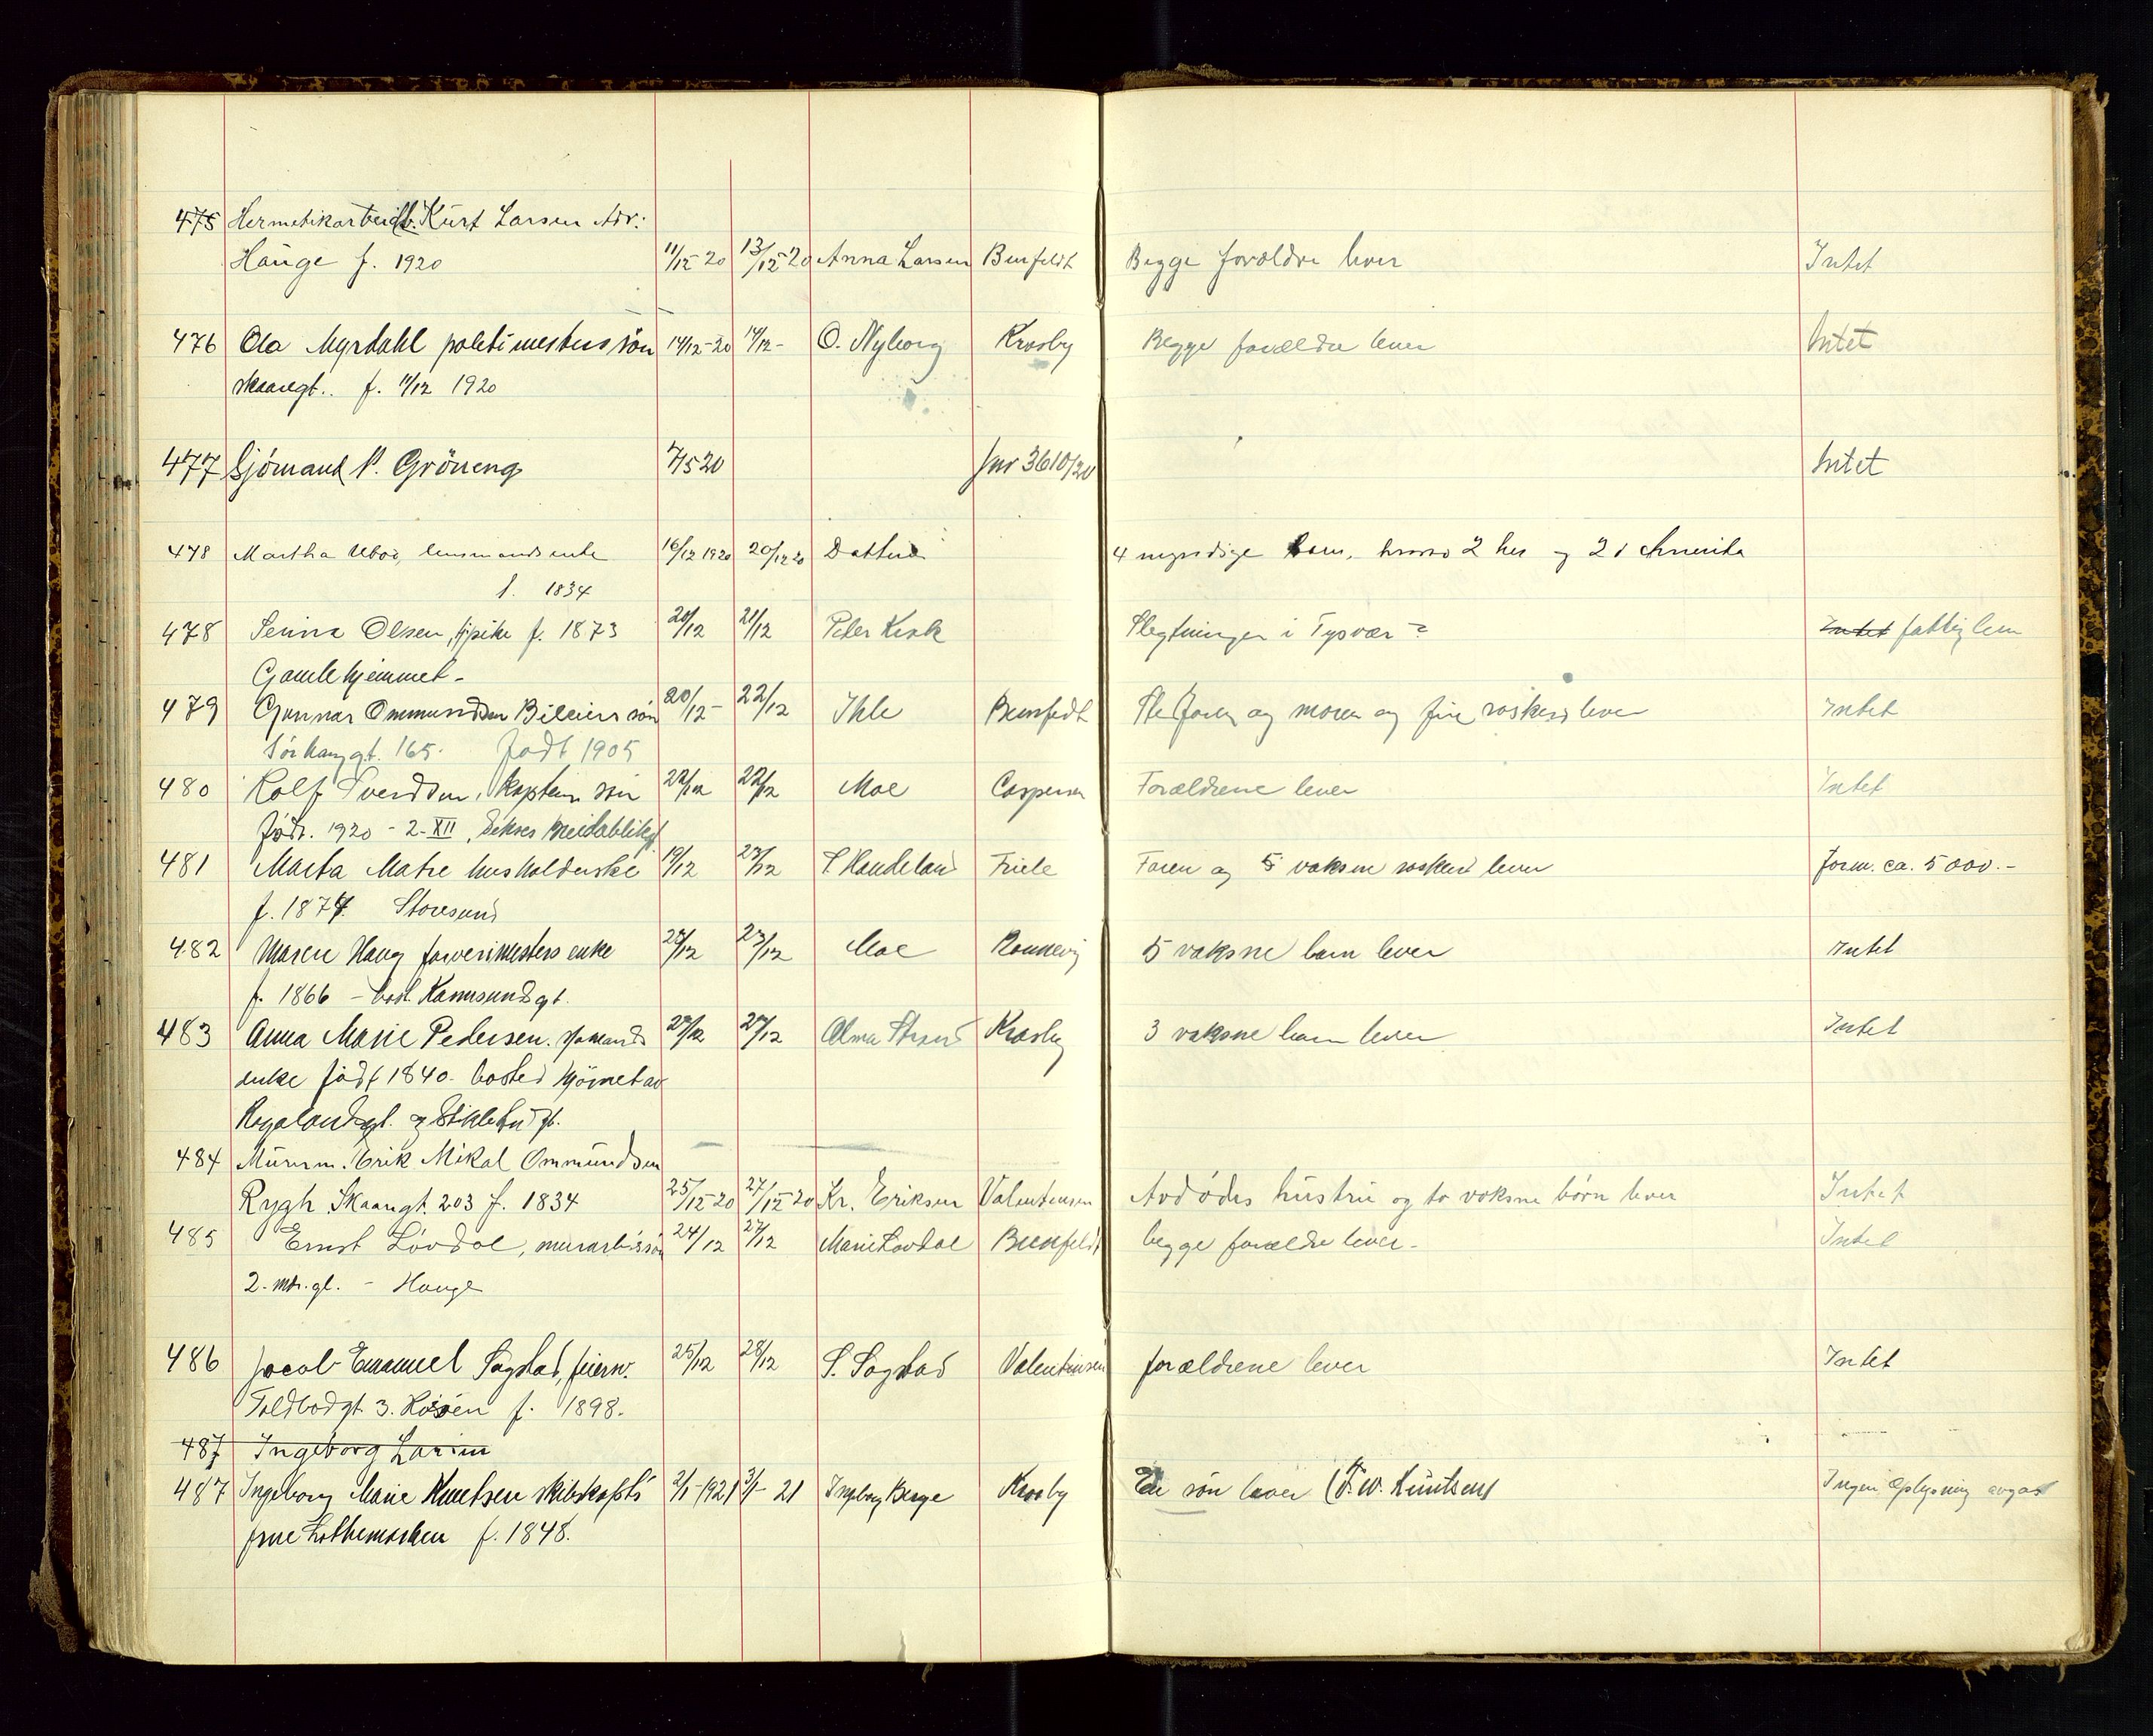 475 Hermetikarbeid. Kurt Larsen
Hauge f. 1920 11/12-20 13/12-20 Anna Larsen Bergfeldt Begge forældre lever Intet
476 Ola Myrdahl politimesters søn 14/12-20 14/12- O. Nyborg Krosby Begge forældre lever Intet
skaaregt.. f. 11/12 1920
477 Sjømand P. Gröneng 7/5 20 Jnr 3610/20 Intet
478 Martha lensmandsenke 16/12 1920 20/12 20 4 myndige barn, hvorav 2 her og 2 i Amerika
f. 1834
478 Serina Olsen, pike f. 1873 20/12 21/12 Peter Slegtninger i Tysvær? Intet fattiglem
Gamlehjemmet-
479 Gunnar Ommundsen søn 20/12- 22/12 Ihle og moren og fire søsken lever Intet
Sørhauggt. 165. født 1905
480 Rolf Svendsen, kaptein søn 22/12 22/12 Moe Caspersen Forældrene lever Intet
født. 1920 - 2-XII,
481 Marta Matre husholderske 19/12 23/12 S. Haudeland Friele Faren og 5 voksne søsken lever form. ca. 5000.-
f. 1874. Storesund
482 Maren Haug farverimesters enke 22/12 23/12 Moe Rønnevig 5 voksne barn lever Intet
f. 1866 - bost. Karmsundgt.
483 Anna Marie Pedersen. sjømands 27/12 Alma Strand Krosby 3 voksne barn lever Intet
enke født 1840. bosted hjørnet av
Rogalandsgt. og
484 Murerm. Erik Mikal Ommundsen
Rygh Skaaregt. 203 f. 1834 25/12-20 27/12-20 Kr. Eriksen Valentinsen Avdødes hustru og to voksne børn lever Intet
485 Ernst Lövdal, murarb. søn 24/12 27/12 Marie Lovdal Bergfeldt begge forældre lever- Intet
2. mdr. gl. - Hauge
486 Jacob Emanuel Sagstad, 25/12 28/12 S. Sagstad Valentinsen forældrene lever Intet
Toldbodgt. 3. f. 1898.
487 Ingeborg Larsen
487 Ingeborg Marie Knutsen skibskapts 2/1-1921 3/1- 21 Ingeborg Berge Krosby En søn lever (F.W. Knutsen) Ingen oplysning avgat
f. 1848.